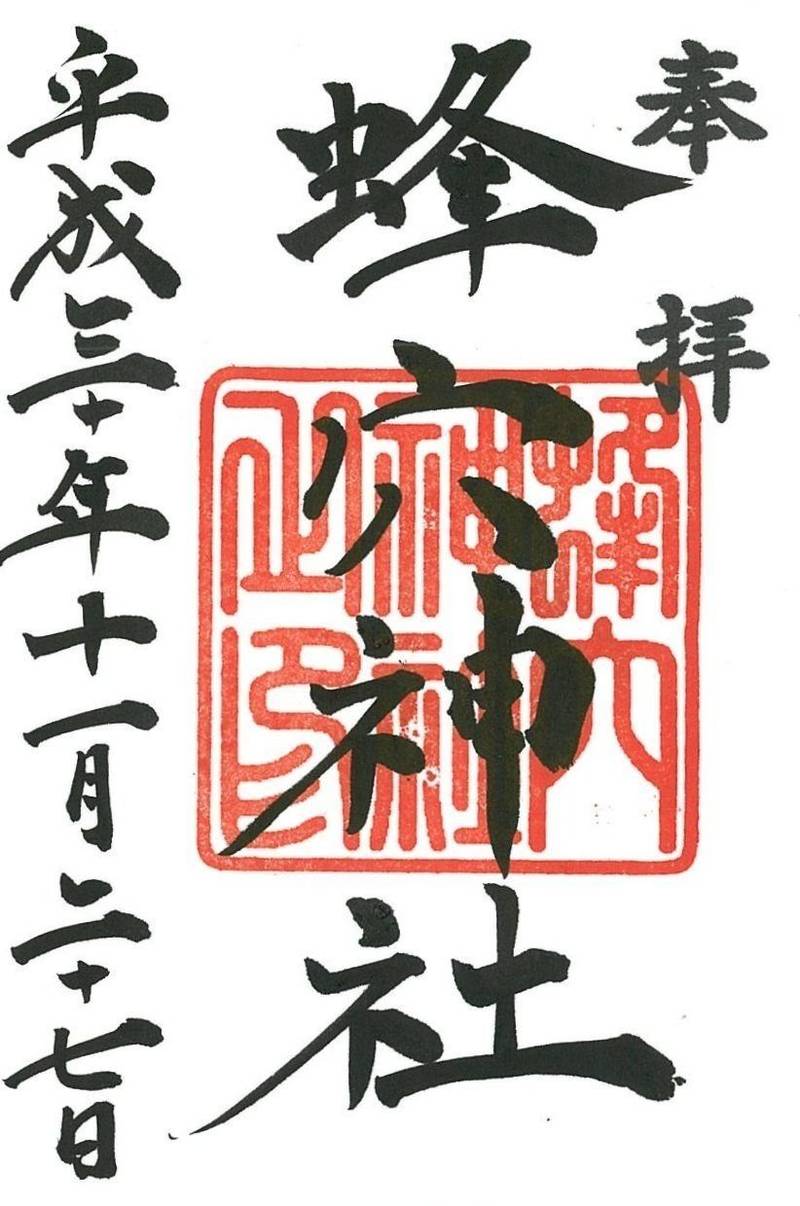 奉拝
蜂穴神社
蜂穴神社之印
平成三十年十一月二十七日